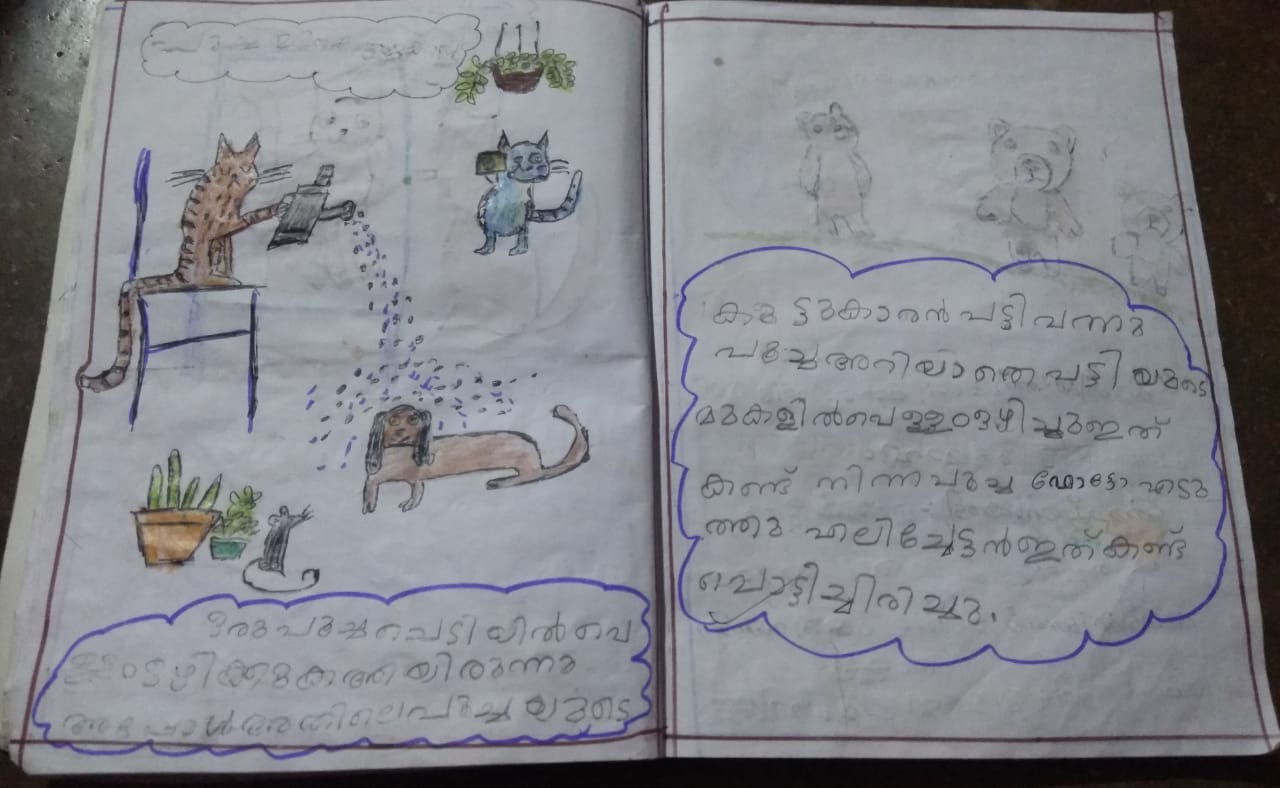 ഒരു പൂച്ച ചെടിയിൽ വെ
ള്ളം ഒഴിക്കുകആയിരുന്നു
അപ്പോൾ അതിലെ പൂച്ചയുടെ
കൂട്ടുകാരൻ പട്ടി വന്നു
പൂച്ച അറിയാതെ പട്ടിയുടെ
മുകളിൽ വെള്ളം ഒഴിച്ചു ഇത്
കണ്ട് നിന്ന പൂച്ച ഫോട്ടോ എടു
ത്തു എലിച്ചേട്ടൻ ഇത് കണ്ട്
പൊട്ടിച്ചിരിച്ചു.